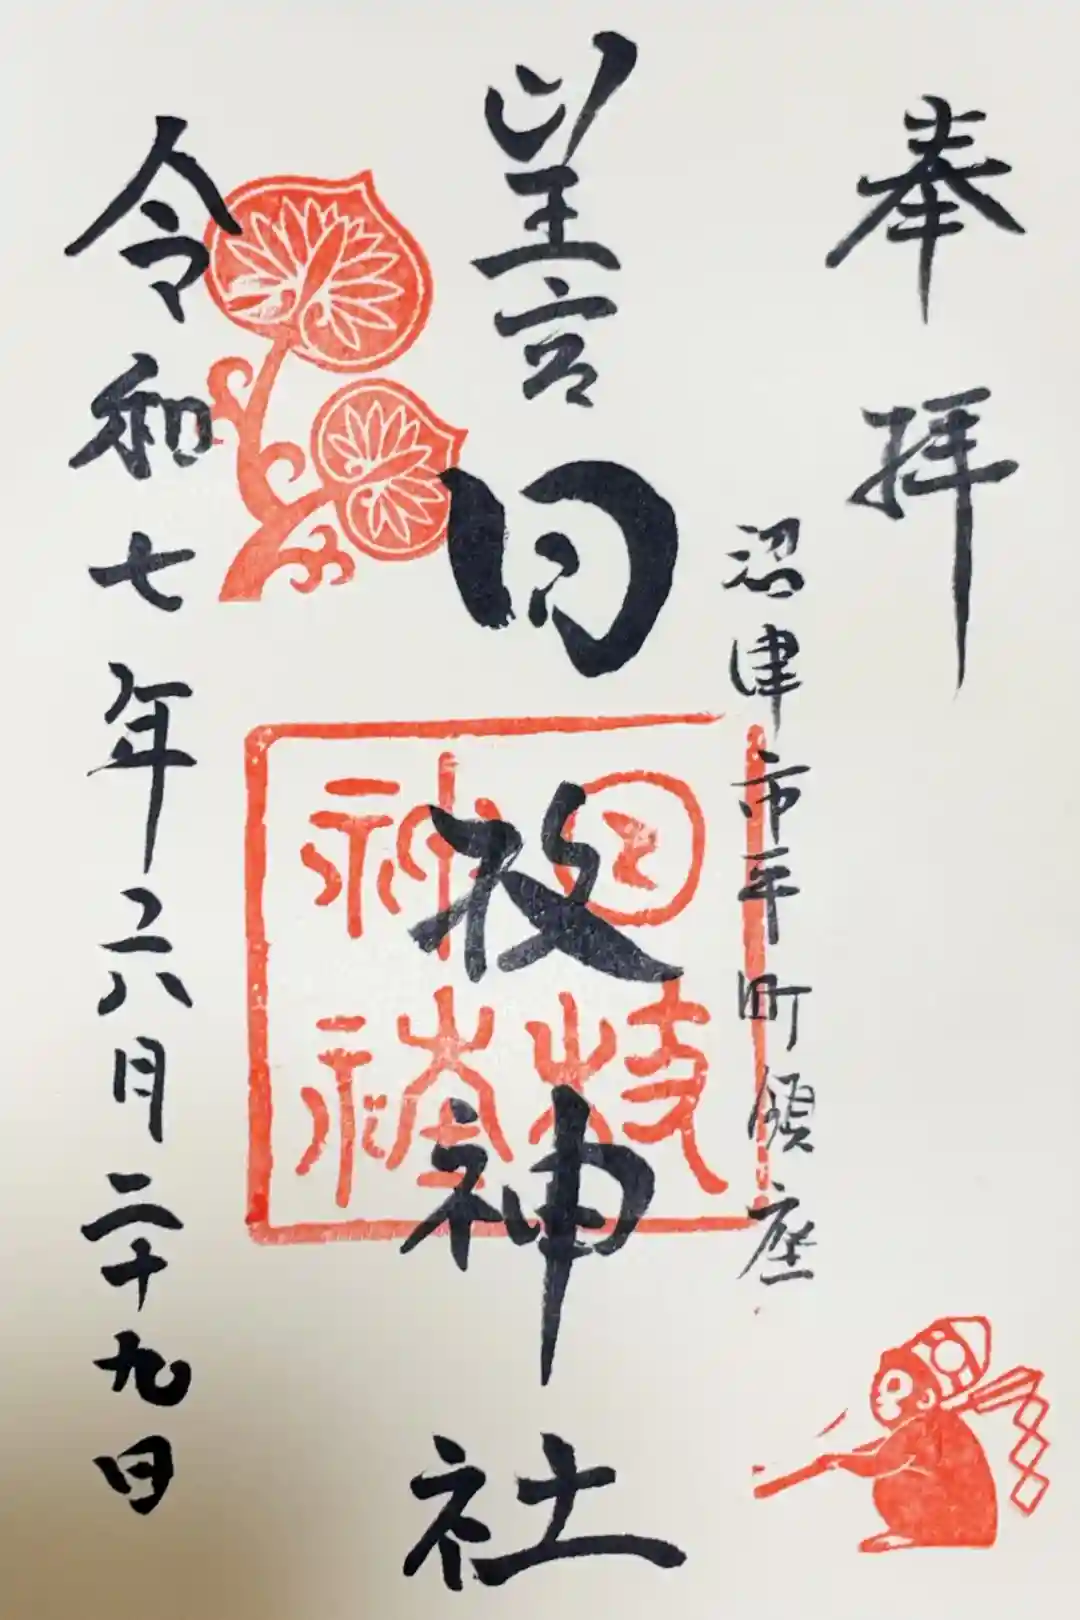 奉拝
沼津市平町鎮座
山王宮
日枝神社
日枝
神社
令和七年六月二十九日